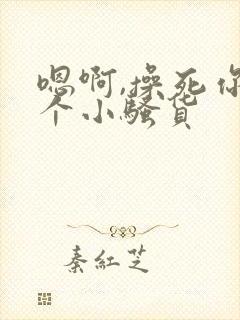 嗯啊,操死你
个小骚货
秦紅芝